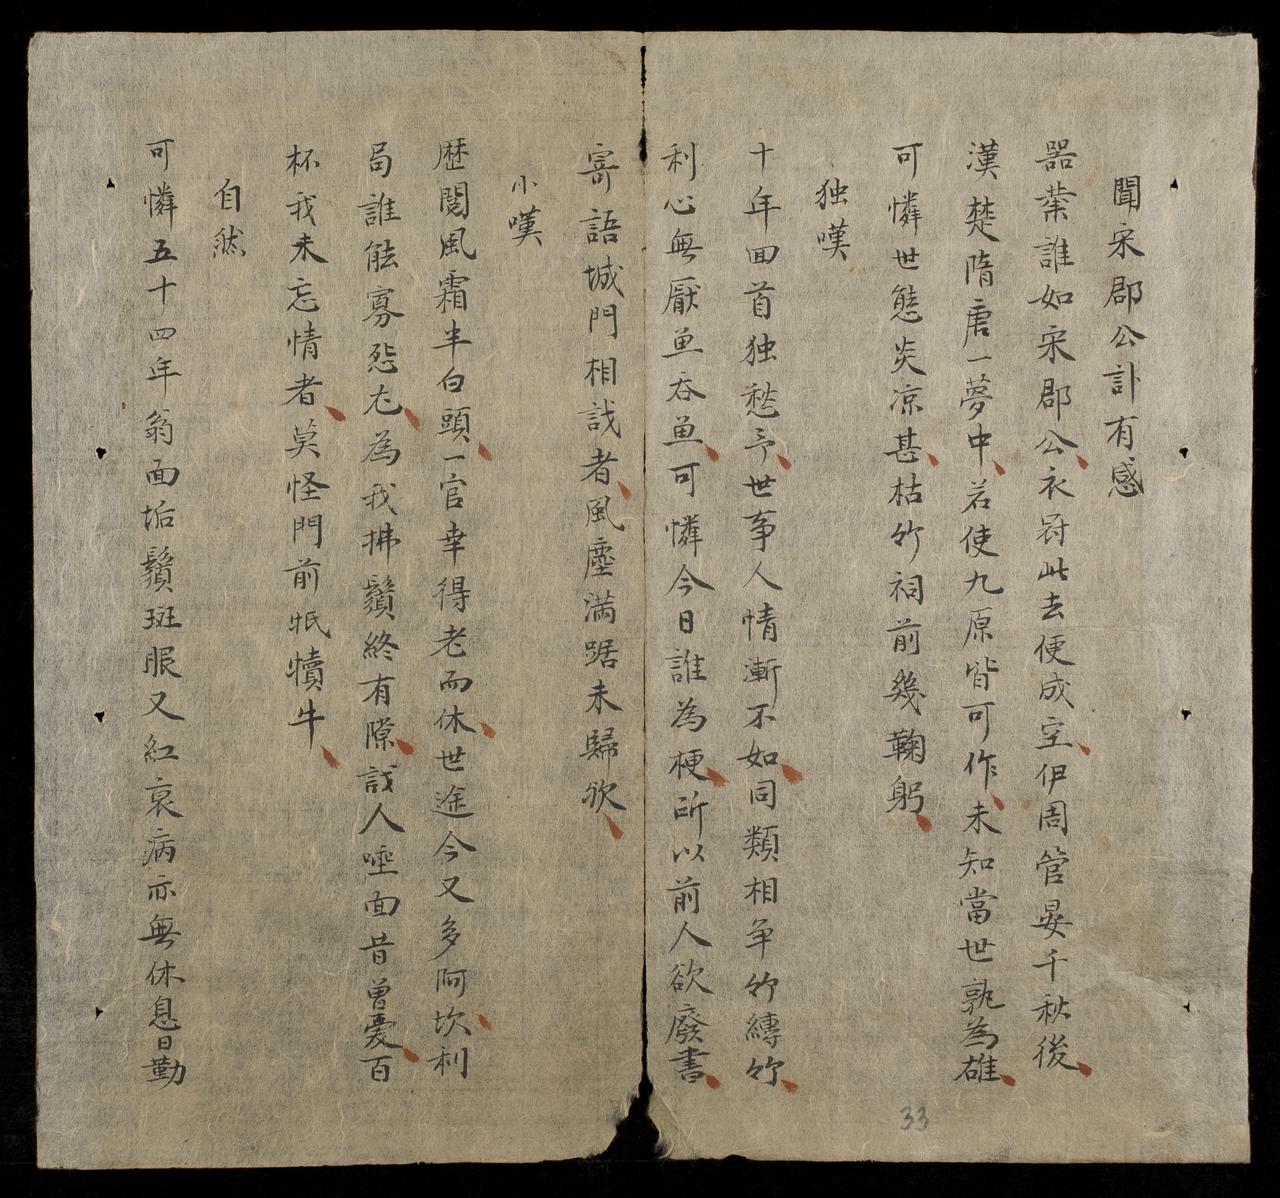 聞宋郡公訃有感
噐業誰如宋郡公衣冠此去便成空伊周管晏千秋後
漢楚隋唐一夢中若使九原皆可作未知當世孰為雄
可憐世態炎凉甚枯竹祠前幾鞠躬
独嘆
十年回首独愁予世事人情漸不如同類相争竹縛竹
利心無厭魚吞魚可憐今日誰為梗所以前人欲廢書
寄語城門相戗者風塵滿踞未歸欤
小嘆
歴閱風霜半白頭一官幸得老而休世途今又多阿坎利
局誰能寡怨尤為我拂鬚終有隙戗人唾面昔曾憂百
杯我未忘情者莫怪門前牴犢牛
自然
可憐五十四年翁面垢鬚斑眼又紅衰病亦無休息日勤
33